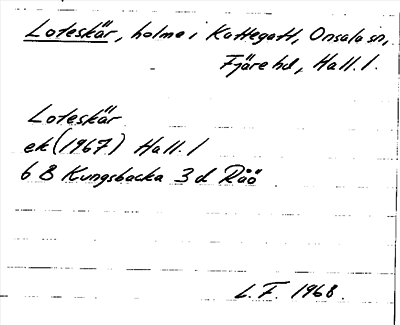 Loteskär, holme i Kattegatt, Onsala sn,
Fjäre hd, Hall. l.
Loteskär
ek (1967) Hall. l
6 B Kungsbacka 3 d Råö
L. F. 1968.